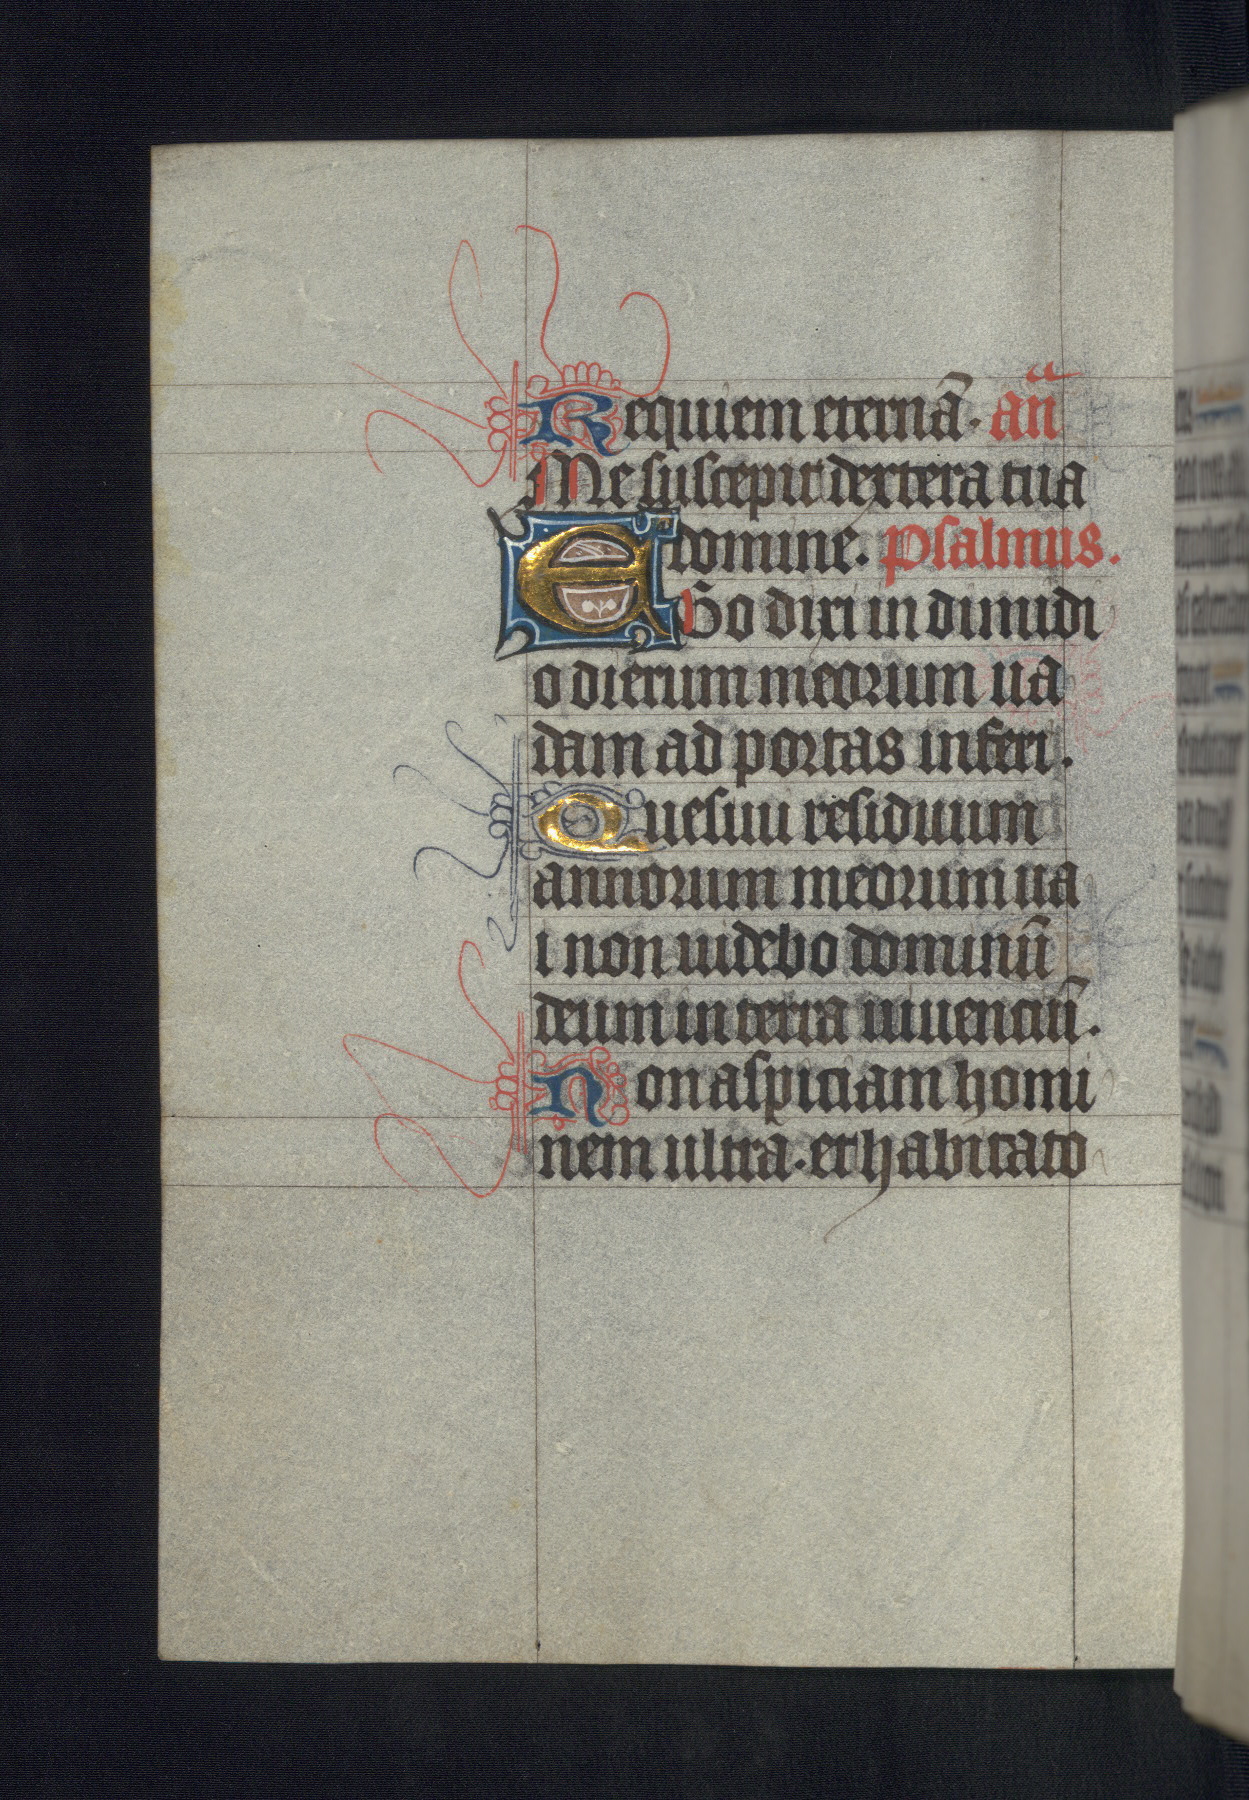 Requiem eternā. an̄
Me suscepit dextera tua
domine. Psalmus.
EGo dixi in dimidi
o dierum meorum ua
dam ad portas inferi.
Quesiui residuum
annorum meorum ua
i non uidebo dominū
deum in terra uiuenciū.
Non aspiciam homi
nem ultra. et habitato